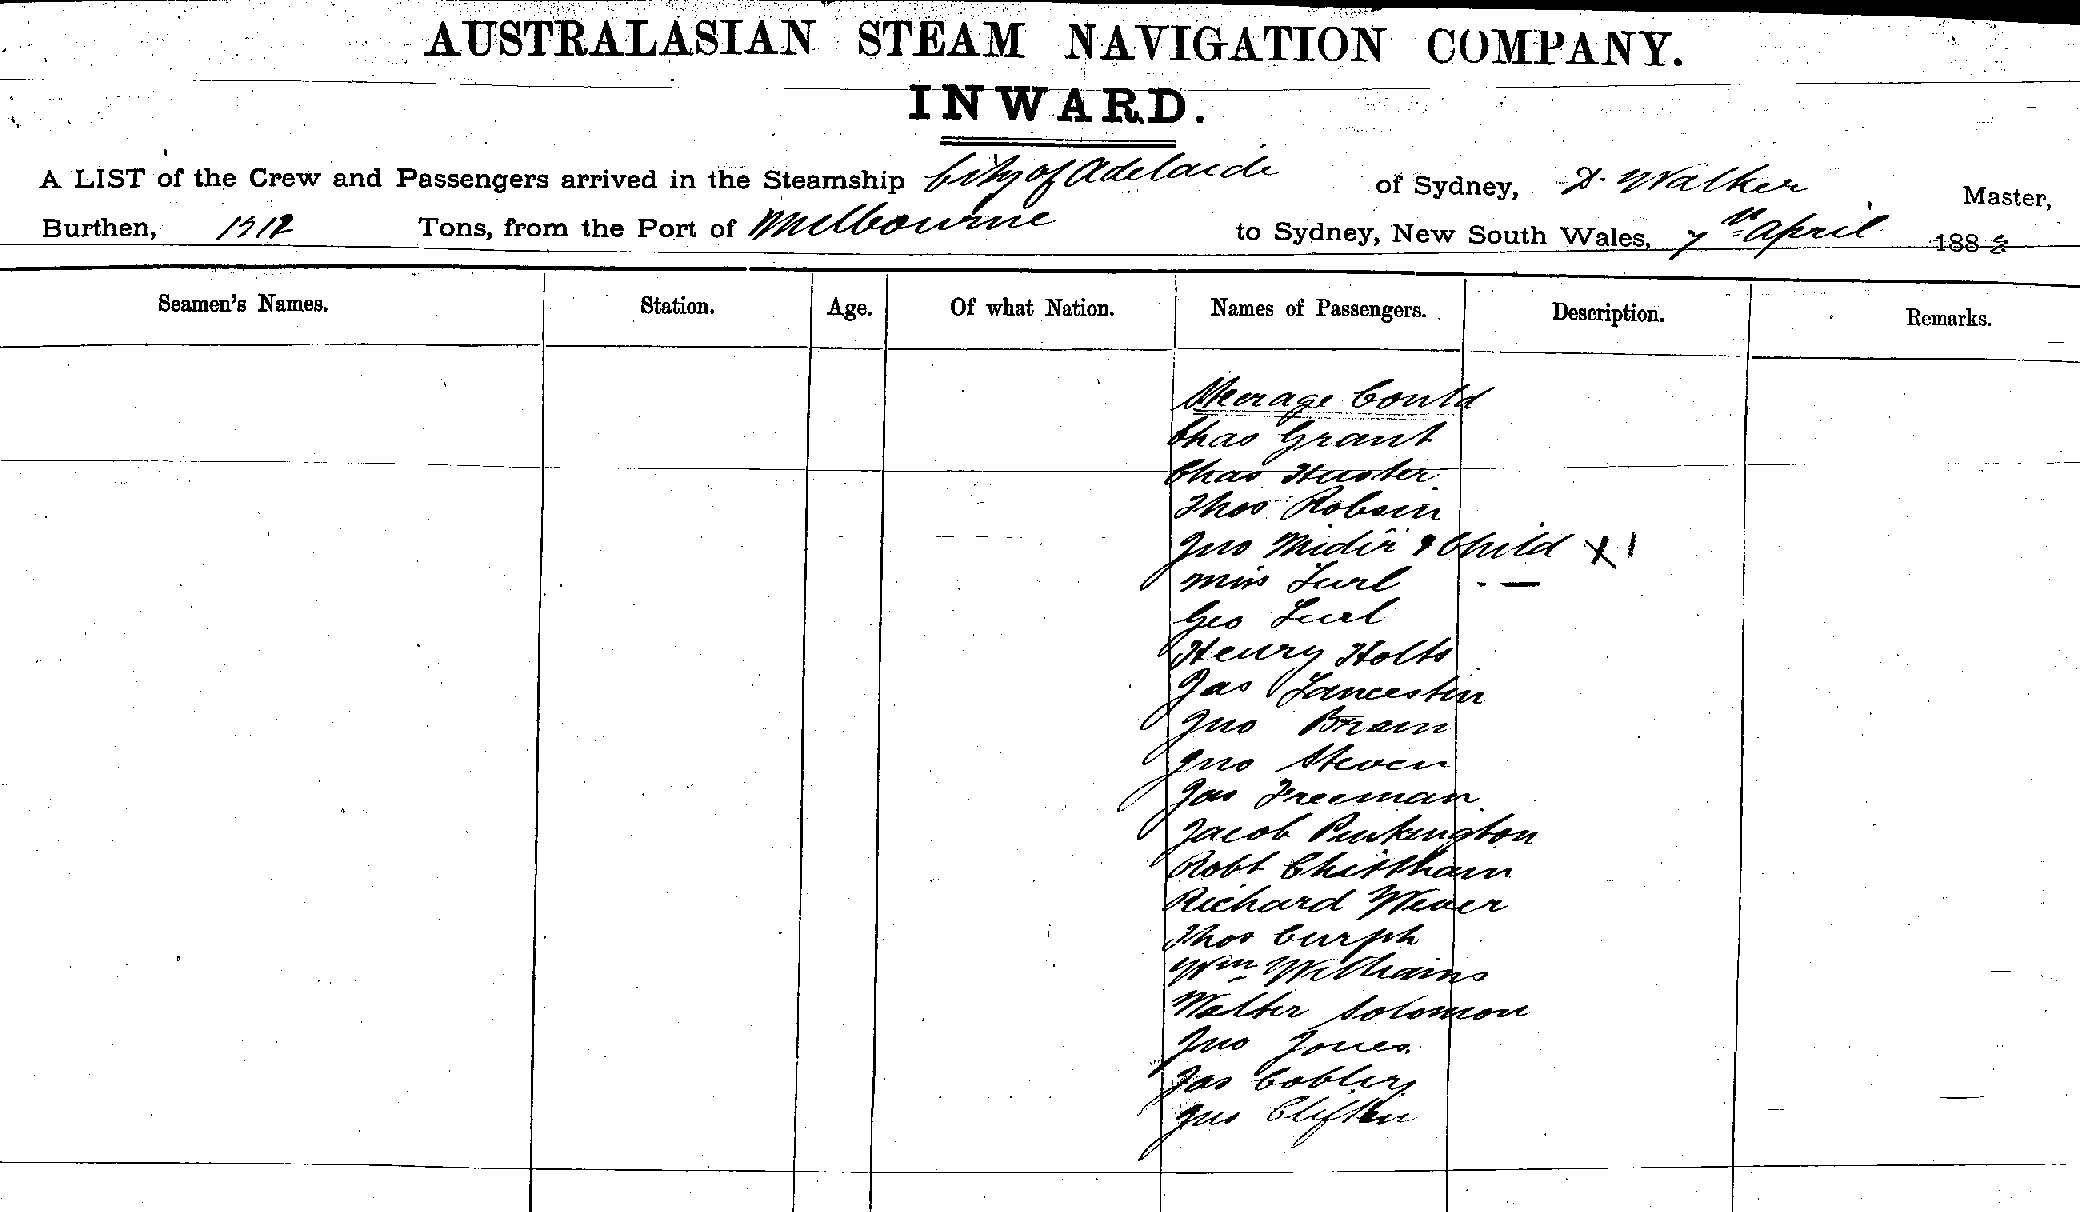 AUSTRALASIAN STEAM NAVIGATION COMPANY.
INWARD.
A LIST of the Crew and Passengers arrived in the Steamship City of Adelaide of Sydney, D. Walker Master,
Burthen, 1212 Tons, from the Port of Melbourne to Sydney, New South Wales, 7th April 188
Seamen's Names. Station. Age. Of what Nation. Names of Passengers. Description. Remarks.
Steerage Contd
Chas Grant
Chas Hunter
Thos Robson
Jno & Child X1
Miss Turl
Geo Turl
Henry Holts
Jas
Jno
Jno Steven
Jas Freeman
Jacob
Robt Chittham
Richard Wever
Thos
Wm Williams
Walter Solomon
Jno Jones
Jas
Jno Clifton